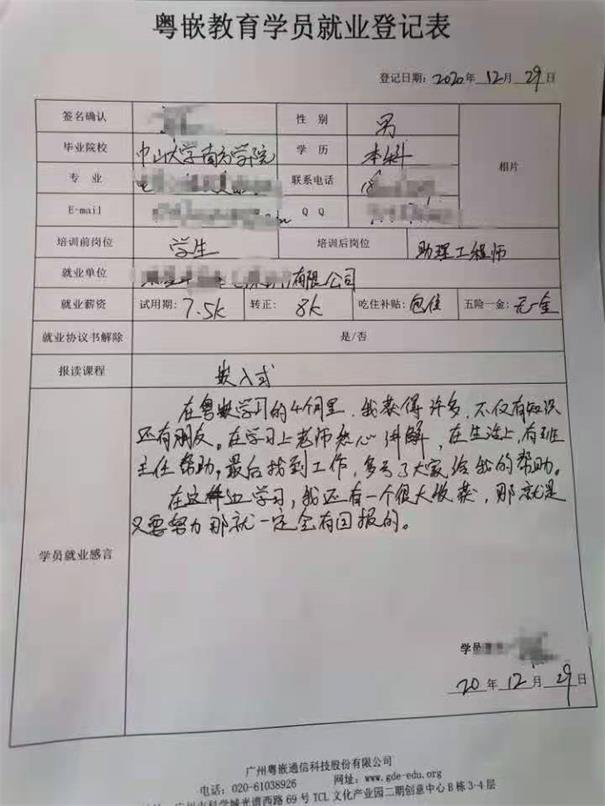 粤嵌教育学员就业登记表
登记日期：2020年 12月 29日
签名确认 性 别 男
毕业院校 中山大学南方学院 学 历 本科 相片
专 业 联系电话
E-mail Q Q
培训前岗位 学生 培训后岗位 助理工程师
就业单位 有限公司
就业薪资 试用期：7.5k 转正：8k 吃住补贴：包住 五险一金：无一金
就业协议书解除 是/否
报读课程 嵌入式
在粤嵌学习的4个月里，我获得许多，不仅有知识
还有朋友。在学习上老师热心讲解，在生活上，有班
主任帮助。最后找到工作，多亏了大家给我的帮助。
在这样边学习，我还有一个很大收获，那就是
又要努力那就一定会有回报的。
学员就业感言
学员
20 年 12 月 29 日
广州粤嵌通信科技股份有限公司
电话：020-61038926 网址：www.gde-edu.org
广州市科学城光谱西路 69 号 TCL 文化产业园二期创意中心 B 栋 3-4 层